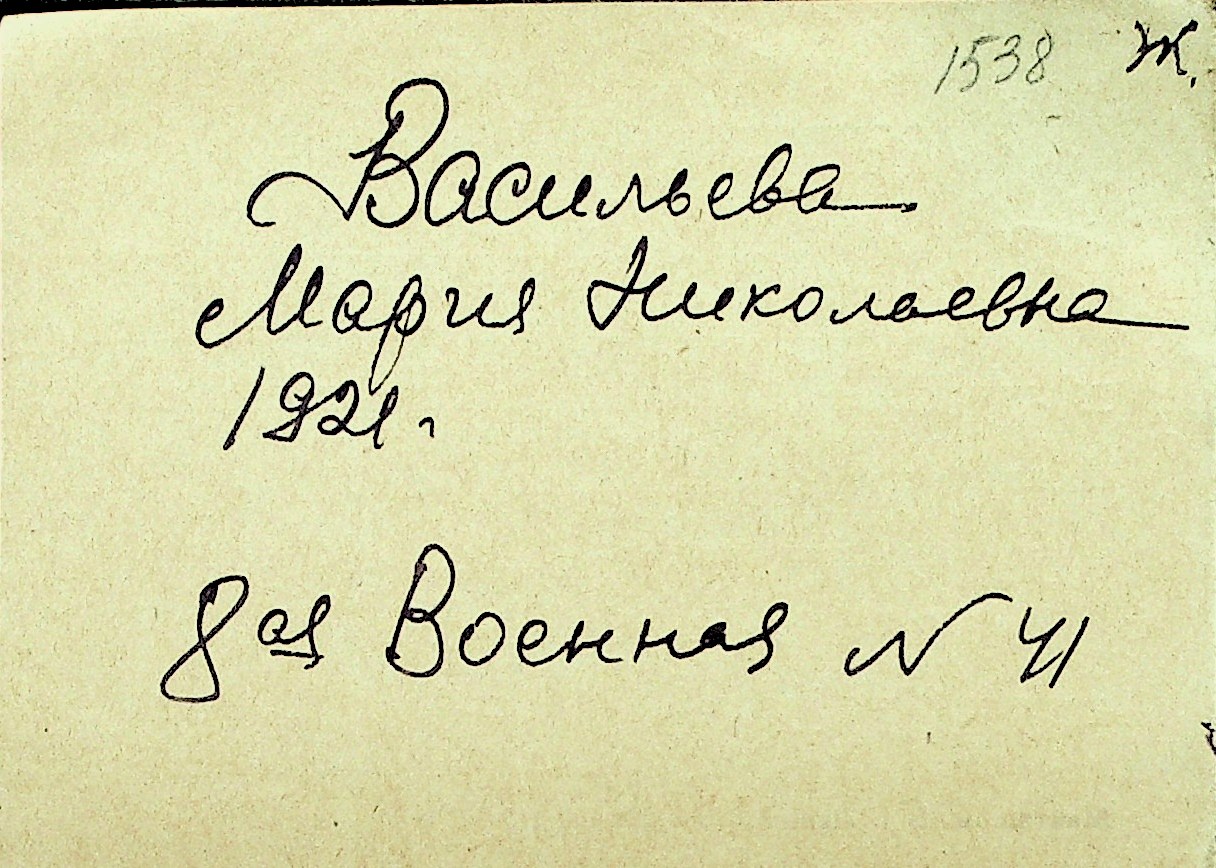 1538 Ж.
Васильева
Мария Николаевна
1921 г.
8ая Военная N 41